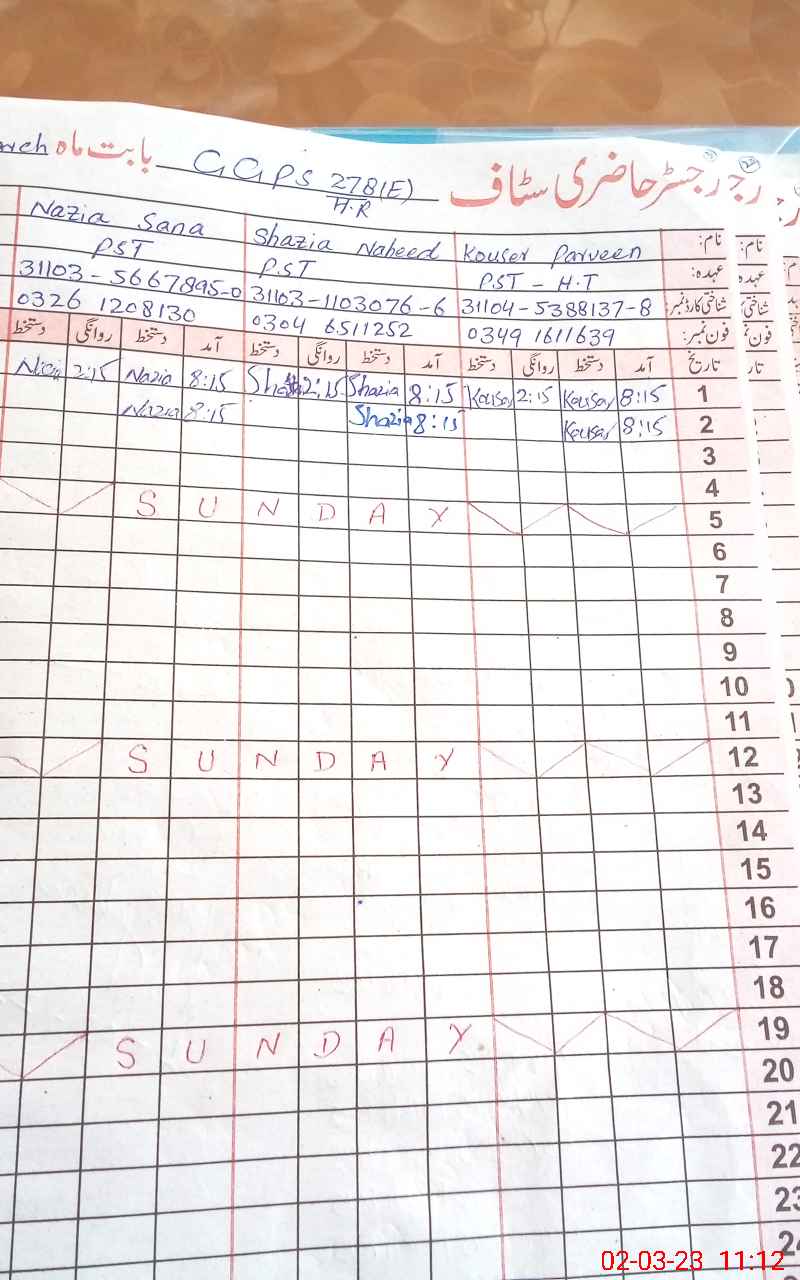 رجسٹر حاضری سٹاف GGPS 278(E)/H.R بابت ماہ
نام: Kouser Parveen Shazia Naheed Nazia Sana
عہدہ: PST - H.T P.ST PST
شناختی کارڈ نمبر: 31104-5388137-8 31103-1103076-6 31103-5667895-0
فون نمبر: 0349 1611639 0304 6511252 0326 1208130
تاریخ آمد دستخط روانگی دستخط آمد دستخط روانگی دستخط آمد دستخط روانگی دستخط
1 8:15 Kousar 2:15 Kousar 8:15 Shazia 2:15 8:15 Nazia 2:15
2 8:15 Kousar 8:15 Shazia 8:15 Nazia
3
4
5 SUNDAY
6
7
8
9
10
11
12 SUNDAY
13
14
15
16
17
18
19 SUNDAY
20
21
22
02-03-23 11:12